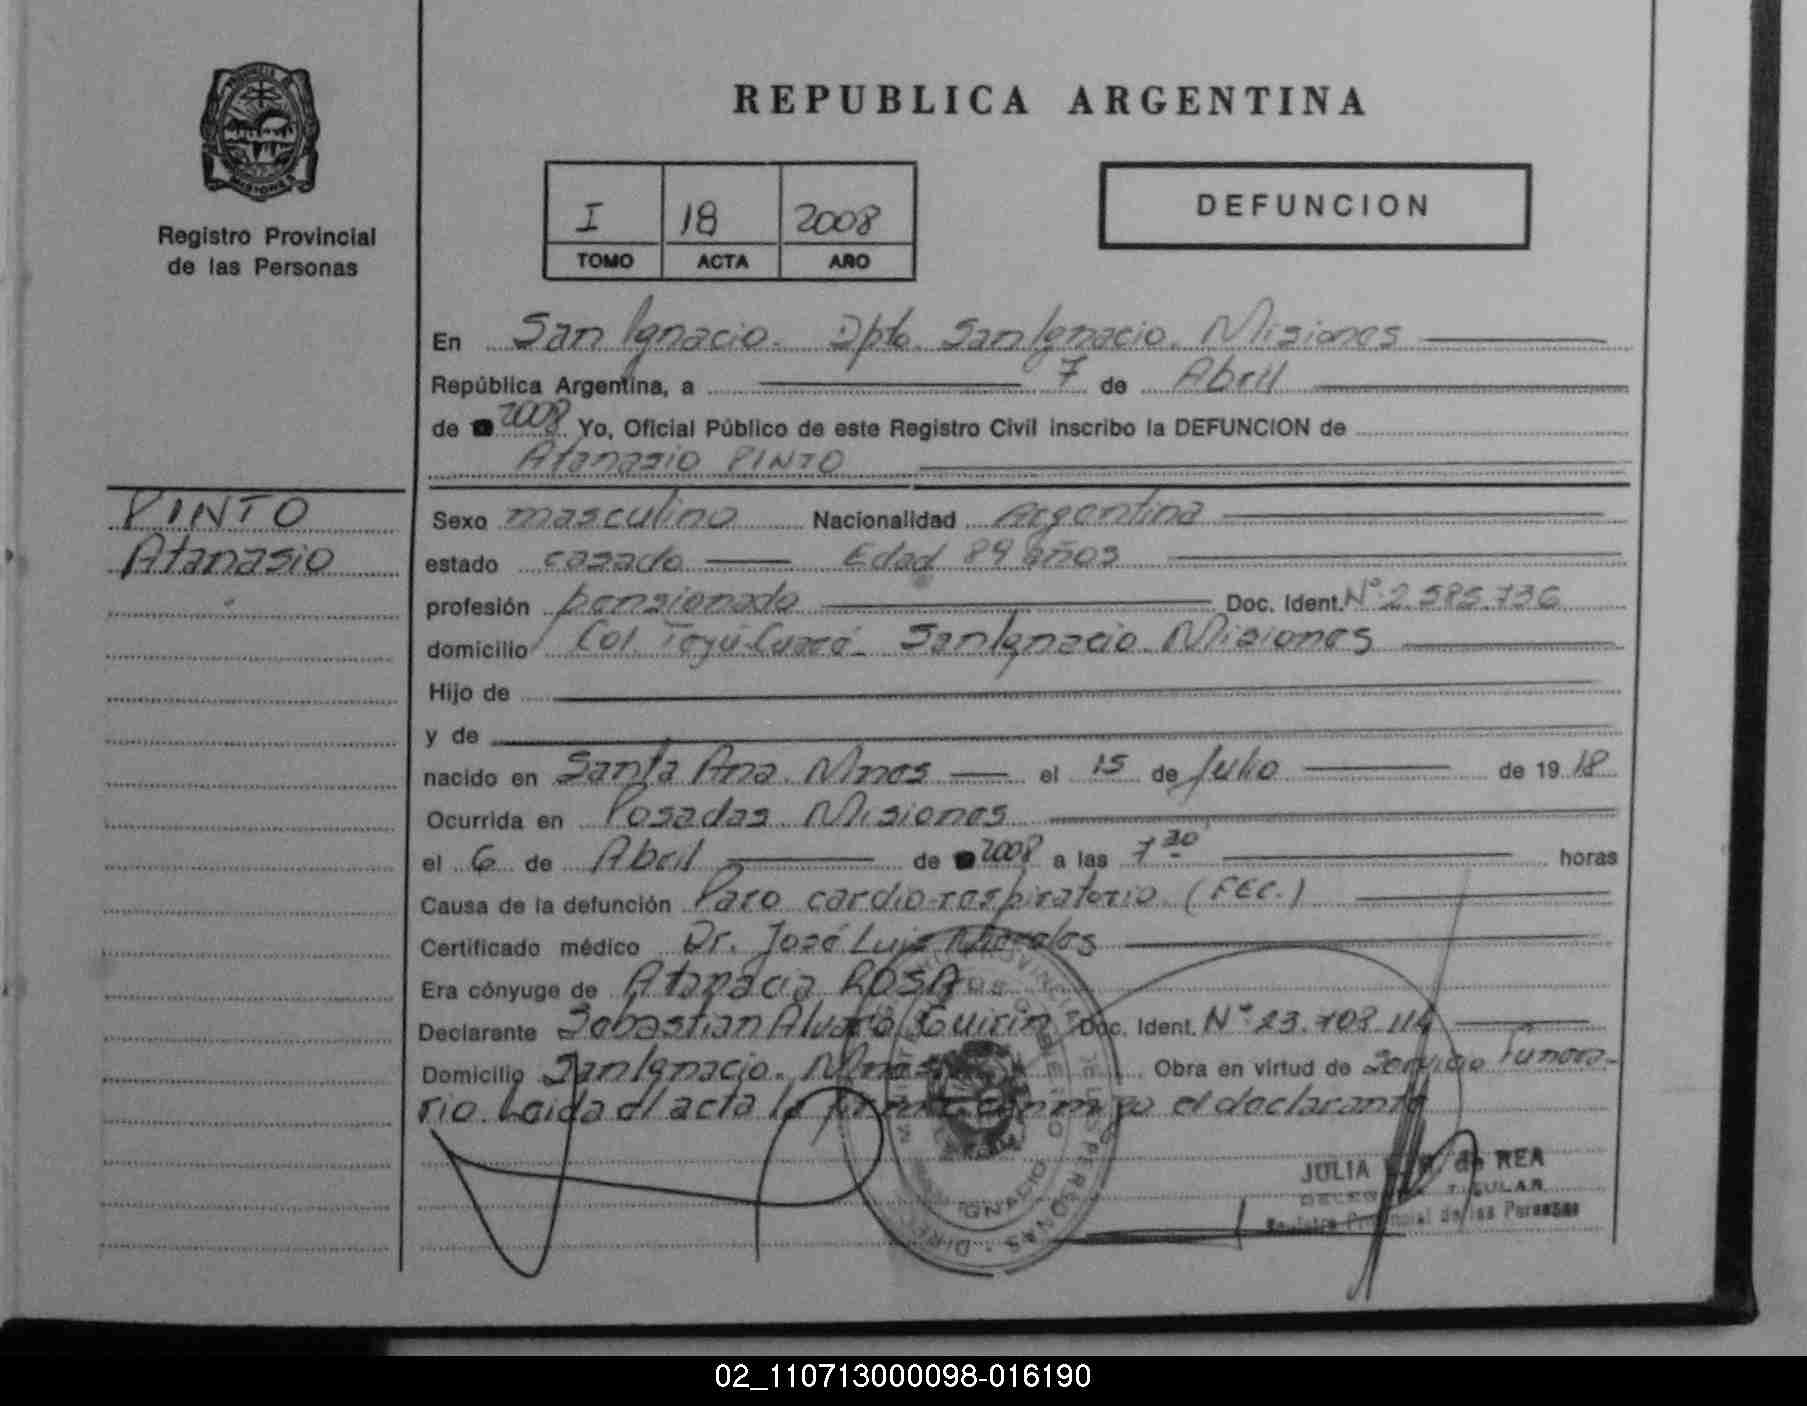 REPUBLICA ARGENTINA
PROVINCIA DE
MISIONES
Registro Provincial
de las Personas
I 18 2008
TOMO ACTA AÑO
DEFUNCION
En San Ignacio. Dpto. San Ignacio. Misiones
República Argentina, a 7 de Abril
de 2008 Yo, Oficial Público de este Registro Civil inscribo la DEFUNCION de
Atanasio PINTO
PINTO
Atanasio
Sexo masculino Nacionalidad Argentina
estado casado Edad 89 años
profesión pensionado Doc. Ident. Nº 2.585.736
domicilio Col. Teyú-Cuaré - San Ignacio. Misiones
Hijo de
y de
nacido en Santa Ana. Mnes el 15 de Julio de 19 18
Ocurrida en Posadas Misiones
el 6 de Abril de 2008 a las 7 30 horas
Causa de la defunción Paro cardio-respiratorio. (FEC.)
Certificado médico Dr. José Luis Morales
Era cónyuge de Atanacia ROSA
Declarante Sebastian Alvaro Doc. Ident. Nº 23.708.114
Domicilio San Ignacio. Mnes Obra en virtud de Servicio Funera-
rio. Leida el acta la firma conmigo el declarante
JULIA de REA
TITULAR
Registro Provincial de las Personas
IGNACIO
02_110713000098-016190